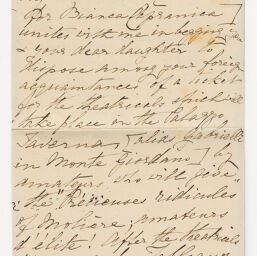 for Bianca Capranica
unites with me in begging you
& your dear daughter to
dispose among your foreign
acquaintances of a ticket
for the theatricals which will
take place in the Palazzo
Taverna [alias Gabrielli
in Monte Giordano] by
amateurs who will give
the "Précieuses ridicules
of Molière; amateurs
d'élite! After the theatricals